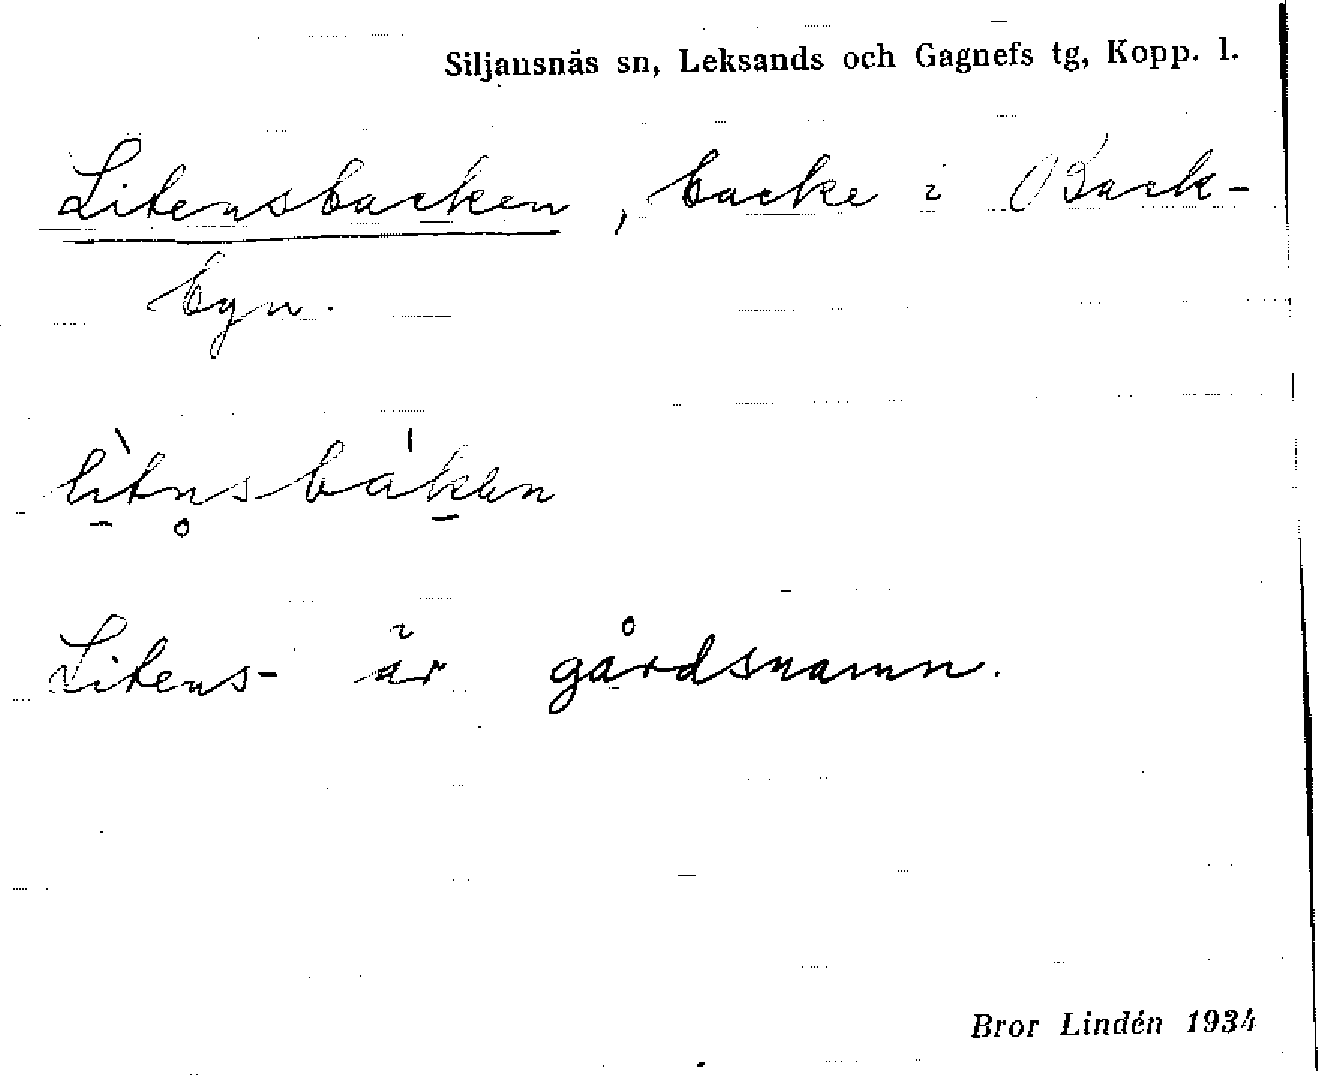 Siljansnäs sn, Leksands och Gagnefs tg, Kopp. l.
Litensbacken, backe i Back-
byn.
lìtn̥sbákən
Litens- är gårdsnamn.
Bror Lindén 1934